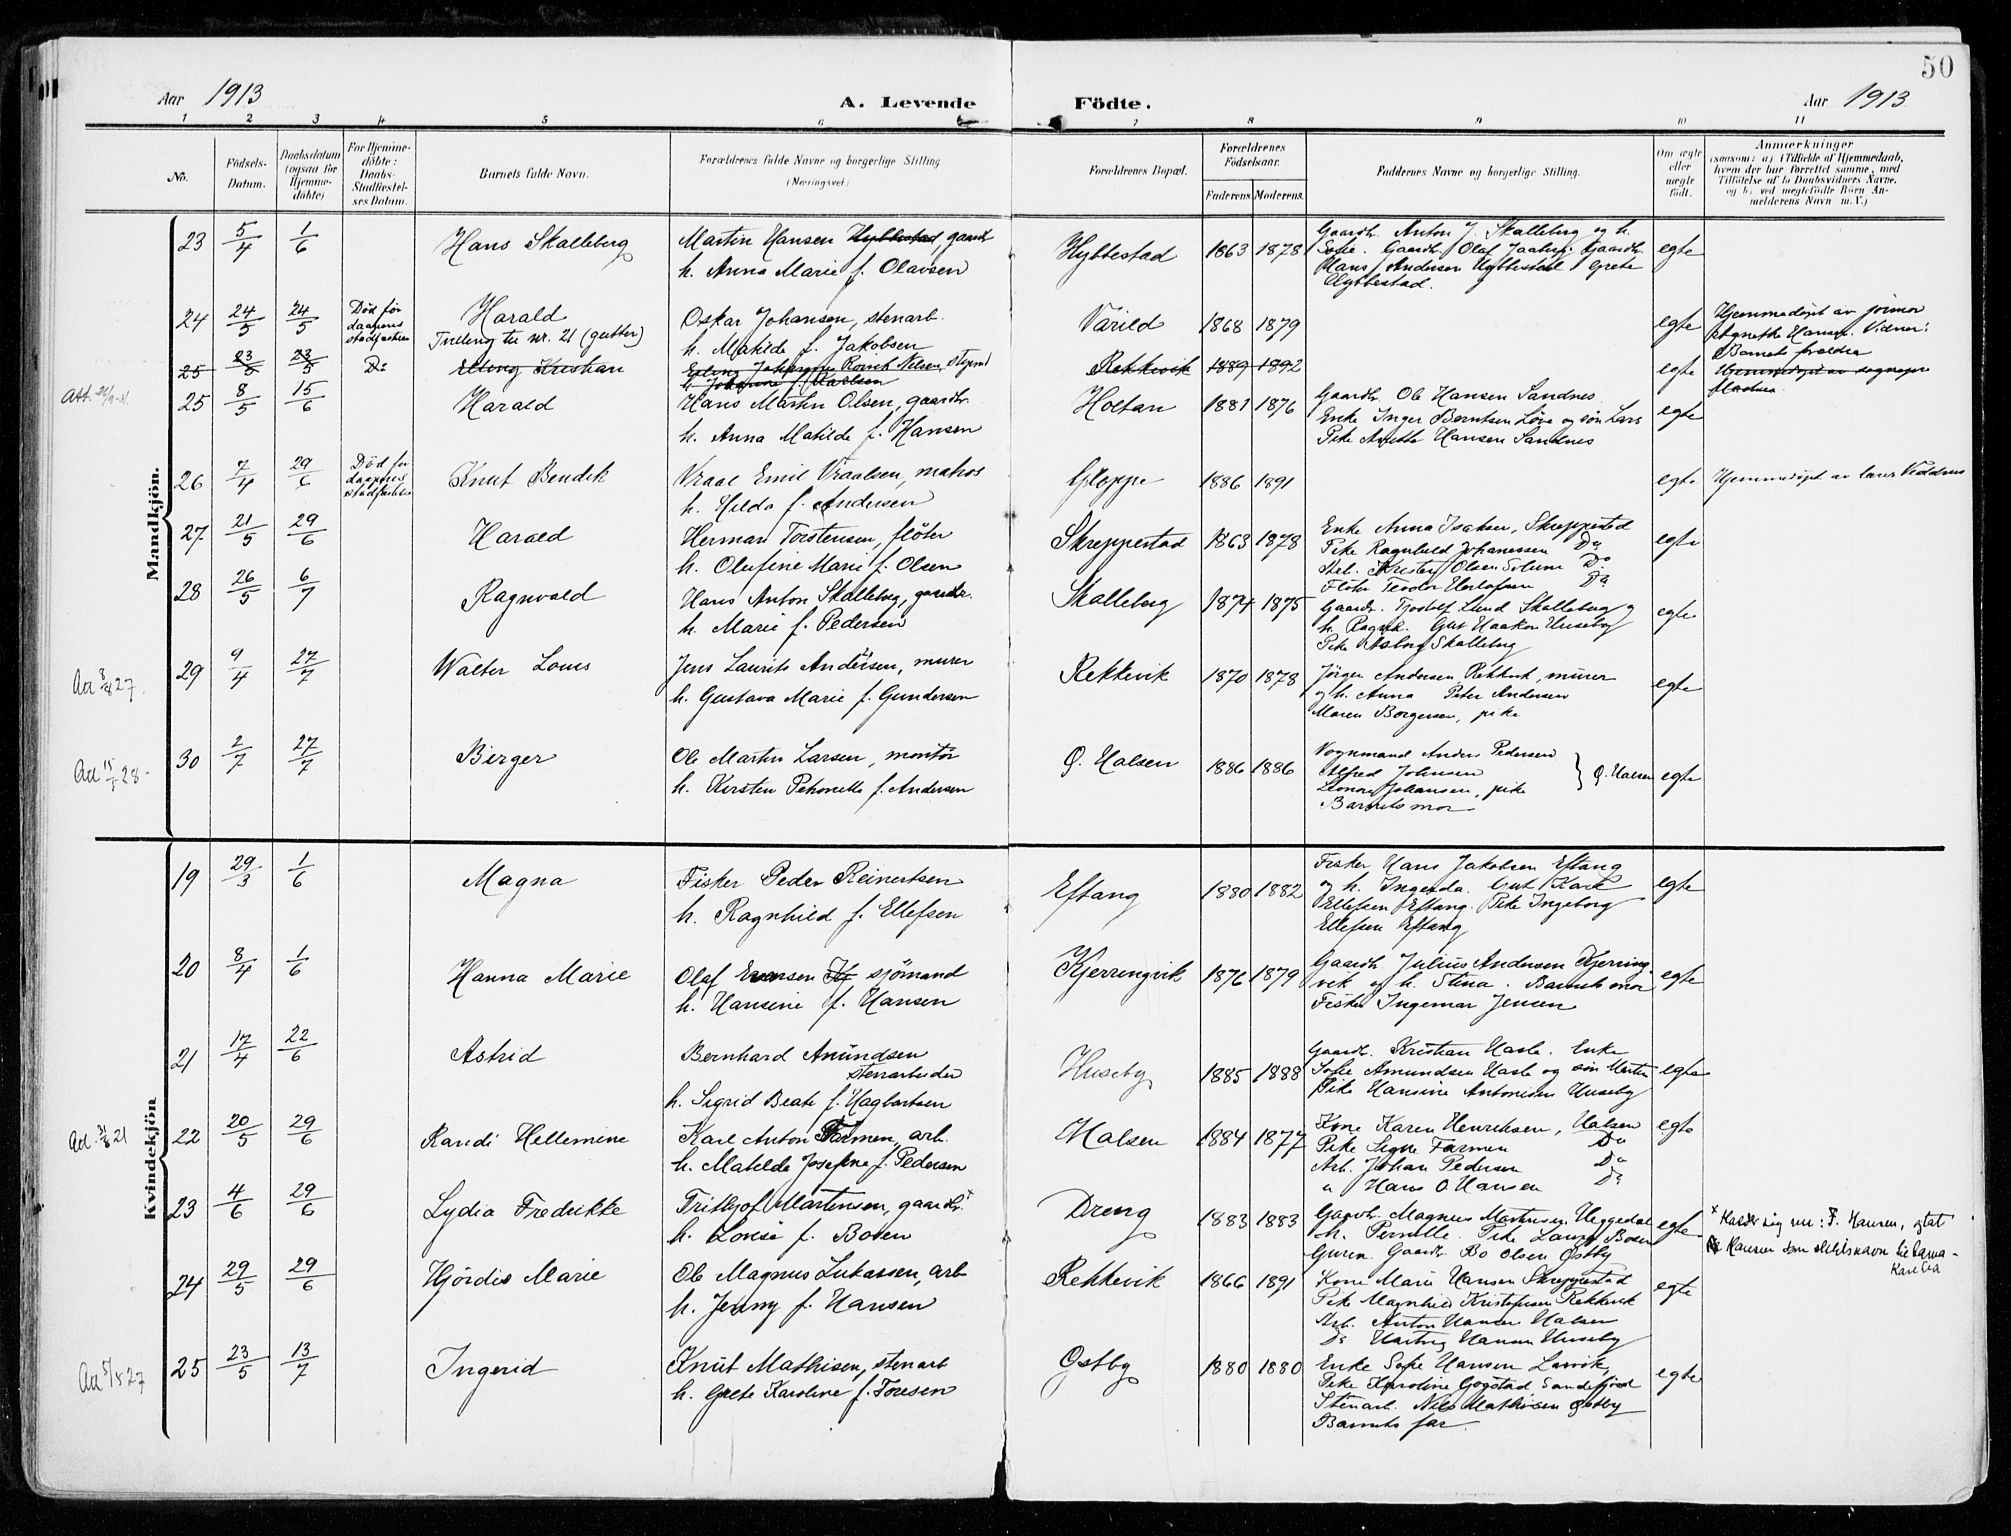 50
Aar 1913
A. Levende Födte.
Aar 1913
1 2 3 4 5 6 7 8 9 10 11
No.
Födsels-Datum.
Daabsdatum (ogsaa for Hjemmedöbte)
For Hjemmedöbte: Daabs-Stadfæstelses Datum.
Barnets fulde Navn.
Forældrenes fulde Navne og borgerlige Stilling (Næringsvei.)
Forældrenes Bopæl.
Forældrenes Födselsaar.
Faderens Moderens
Faddernes Navne og borgerlige Stilling.
Om ægte eller uægte födt.
Anmærkninger
(saasom: a) i Tilfælde af Hjemmedaab,
hvem der har forrettet samme, med
Tilföielse af to Daabsvidners Navne,
og b) ved uægtefödte Börn Anmelderens Navn m. V.)
Mandkjön.
23 5/4 1/6 Hans Skalleberg
Martin Hansen Hybbestad gaardr
h. Anna Marie f. Olavsen
Hybbestad 1863 1878
Gaardbr. Anton J. Skalleberg og h.
Sofie. Gaardbr. Olaf Jaaberg. Gaardbr.
Hans Andersen Hybbestad Grete
Hybbestad.
egte
24 24/5 24/5 Død før daapens stadfæstelse
Harald
Tvilling til nr. 21 (gutter)
Oskar Johansen, stenarb.
h. Matilde f. Jakobsen
Värild 1868 1879
egte
Hjemmedøpt av jormor
Agnethe Hansen. Vidner:
Barnets foreldre
25 23/5 23/5 Do
Erling Kristian
h. Johanne f. Karlsen
Rekkevik 1889 1892 egte
Hjemmedøpt av sogneprest
25 8/5 15/6 Harald
Hans Martin Olsen, gaardbr.
h. Anna Matilde f. Hansen
Holtan 1881 1876
Gaardbr. Ole Hansen Sandnes
Enke Inger Berntsen Løve og søn Lars
Pike Anette Hansen Sandnes
egte
26 7/4 29/6 Død før daapens stadfæstelse
Knut Bendik
Vraal Emil Vraalsen, matros
h. Hilda f. Andersen
Gloppe 1886 1891
egte
Hjemmedøpt av lærer Veddnes
27 21/5 29/6 Harald
Herman Torstensen, fløter
h. Olufine Marie f. Olsen
Skreppestad 1863 1878
Enke Anna Isaksen, Skreppestad
Pike Ragnhild Johannessen Do
Arb. Kristen Olsen Solum Do
Fløter Teodor Herlofsen Do
egte
28 26/5 6/7 Ragnvald
Hans Anton Skalleberg, gaardbr.
h. Marie f. Pedersen
Skalleberg 1874 1875
Gaardbr. Tjodolf Lund Skalleberg og
h. Ragnh. Gut Haakon Huseby
Pike Asborg Skalleberg
egte
29 9/4 27/7 Walter Louis
Jens Laurits Andersen, murer
h. Gustava Marie f. Gundersen
Rekkevik 1870 1878
Jørgen Andersen Rekkevik, murer
og h. Anna Peter Andersen
Maren Borgersen, pike
egte
30 2/7 27/7 Birger
Ole Martin Larsen, montør
h. Kirsten Petronelle f. Andersen
Ø. Halsen 1886 1886
Vognmand Anders Pedersen
Alfred Johnsen
Leonora Johansen, pike
Barnets mor
Ø. Halsen egte
Kvindekjön
19 29/3 1/6 Magna
Fisker Peder Reinertsen
h. Ragnhild f. Ellefsen
Eftang 1880 1882
Fisker Hans Jakobsen Eftang
og h. Ingerda. Gut Karl
Ellefsen Eftang. Pike Ingeborg
Ellefsen Eftang
egte
20 8/4 1/6 Hanna Marie
Olaf Evensen sjømand
h. Hansine f. Hansen
Kjerringvik 1876 1879
Gaardbr. Julius Andersen Kjerring
vik og h. Stina. Barnets mor
Fisker Ingemar Jensen
egte
21 17/4 22/6 Astrid
Bernhard Amundsen
stenarbeider
h. Sigrid Beate f. Hagbartsen
Huseby 1885 1888
Gaardbr. Kristian Hasle. Enke
Sofie Amundsen Hasle og søn Martin
Pike Hansine Antonisen Huseby
egte
22 20/5 29/6 Randi Hellemine
Karl Anton Farmen, arb.
h. Matilde Josefine f. Pedersen
Halsen 1884 1877
Kone Karen Henriksen, Halsen
Pike Signe Farmen Do
Arb. Johan Pedersen Do
" Hans O. Hansen Do
egte
23 4/6 29/6 Lydia Fredrikke
Fritjof Martinsen, gaardbr. x
h. Lovise f. Boten
Dreng 1883 1883
Gaardbr. Magnus Martinsen Heggedal
h. Pernille. Pike Laura Bosen
Guren. Gaardbr. Bo Olsen Østby
egte
x Kalder sig nu: F. Hansen, egtat
Hansen som slektsnavn
24 29/5 29/6 Hjördis Marie
Ole Magnus Lukassen, arb
h. Jenny f. Hansen
Rekkevik 1866 1891
Kone Marie Hansen Skreppestad
Pike Magnhild Kristofersen Rekkevik
Arb. Anton Hansen Halsen
Do Hartvig Hansen Huseby
egte
25 23/5 13/7 Ingerid
Knut Mathisen, stenarb
h. Grete Karoline f. Toresen
Østby 1880 1880
Enke Sofie Hansen Larvik,
Pike Karoline Gogstad, Sandefjord
Stenarb. Nils Mathisen Østby
Barnets far
egte